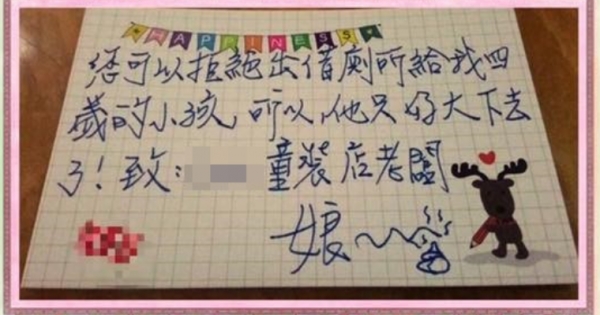 HAPPINESS
您可以拒絕出借廁所給我四
歲的小孩，所以，他只好大下去
了！致：童裝店老闆
娘～～